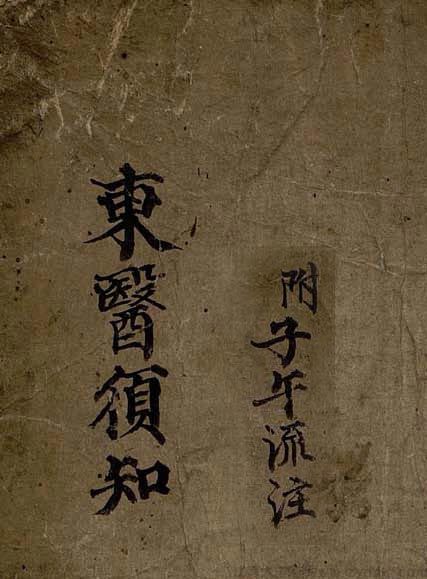 附子午流注
東醫須知